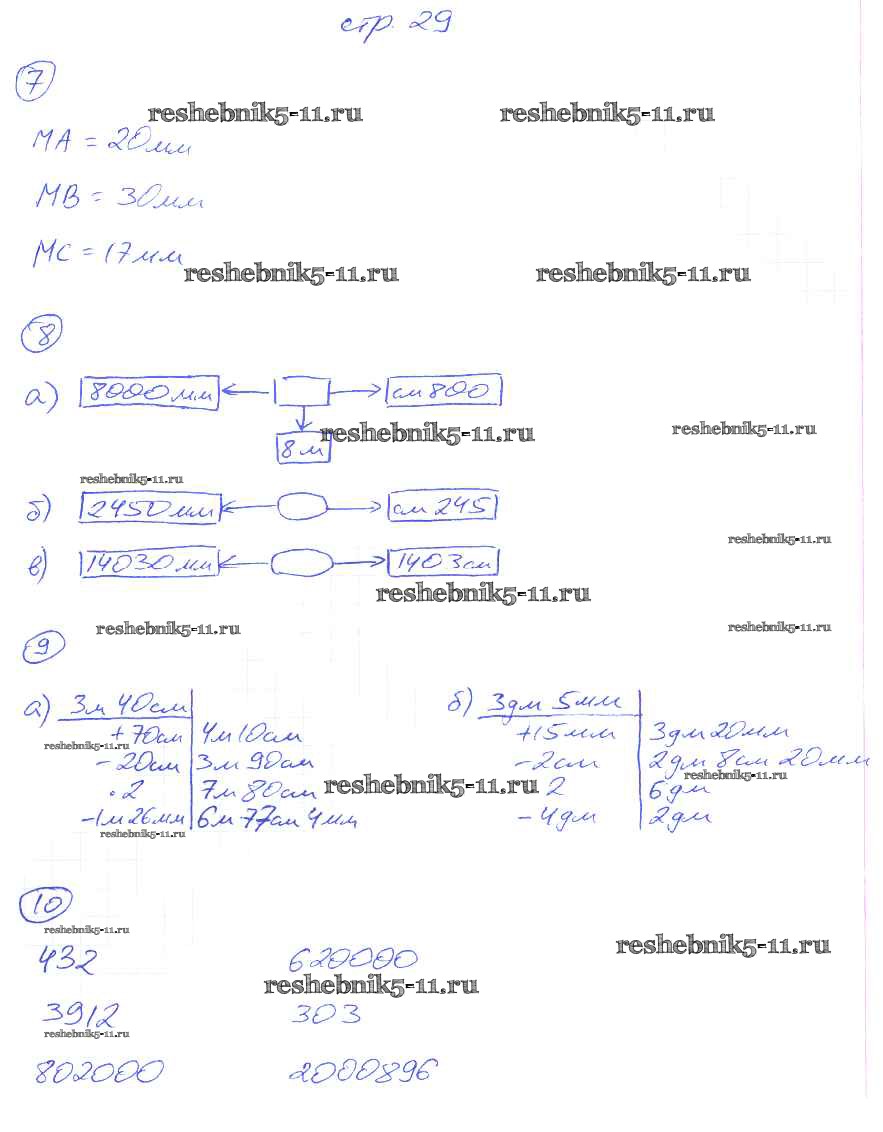 стр. 29
7
reshebnik5-11.ru reshebnik5-11.ru
МА = 20мм
МВ = 30мм
МС = 17мм
reshebnik5-11.ru reshebnik5-11.ru
8
а) 8000мм см 800
8м
reshebnik5-11.ru reshebnik5-11.ru
reshebnik5-11.ru
б) 2450мм см 245
reshebnik5-11.ru
в) 14030мм 1403см
reshebnik5-11.ru
reshebnik5-11.ru reshebnik5-11.ru
9
а) 3м 40см б) 3дм 5мм
+70см 4м10см +15мм 3дм20мм
reshebnik5-11.ru
-20см 3м 90см -2см 2дм 8см 20мм
reshebnik5-11.ru
·2 7м 80см reshebnik5-11.ru 2 6дм
-1м26мм 6м 77см 4мм -4дм 2дм
reshebnik5-11.ru
10
reshebnik5-11.ru
reshebnik5-11.ru
432 620000
reshebnik5-11.ru
3912 303
reshebnik5-11.ru
802000 2000896